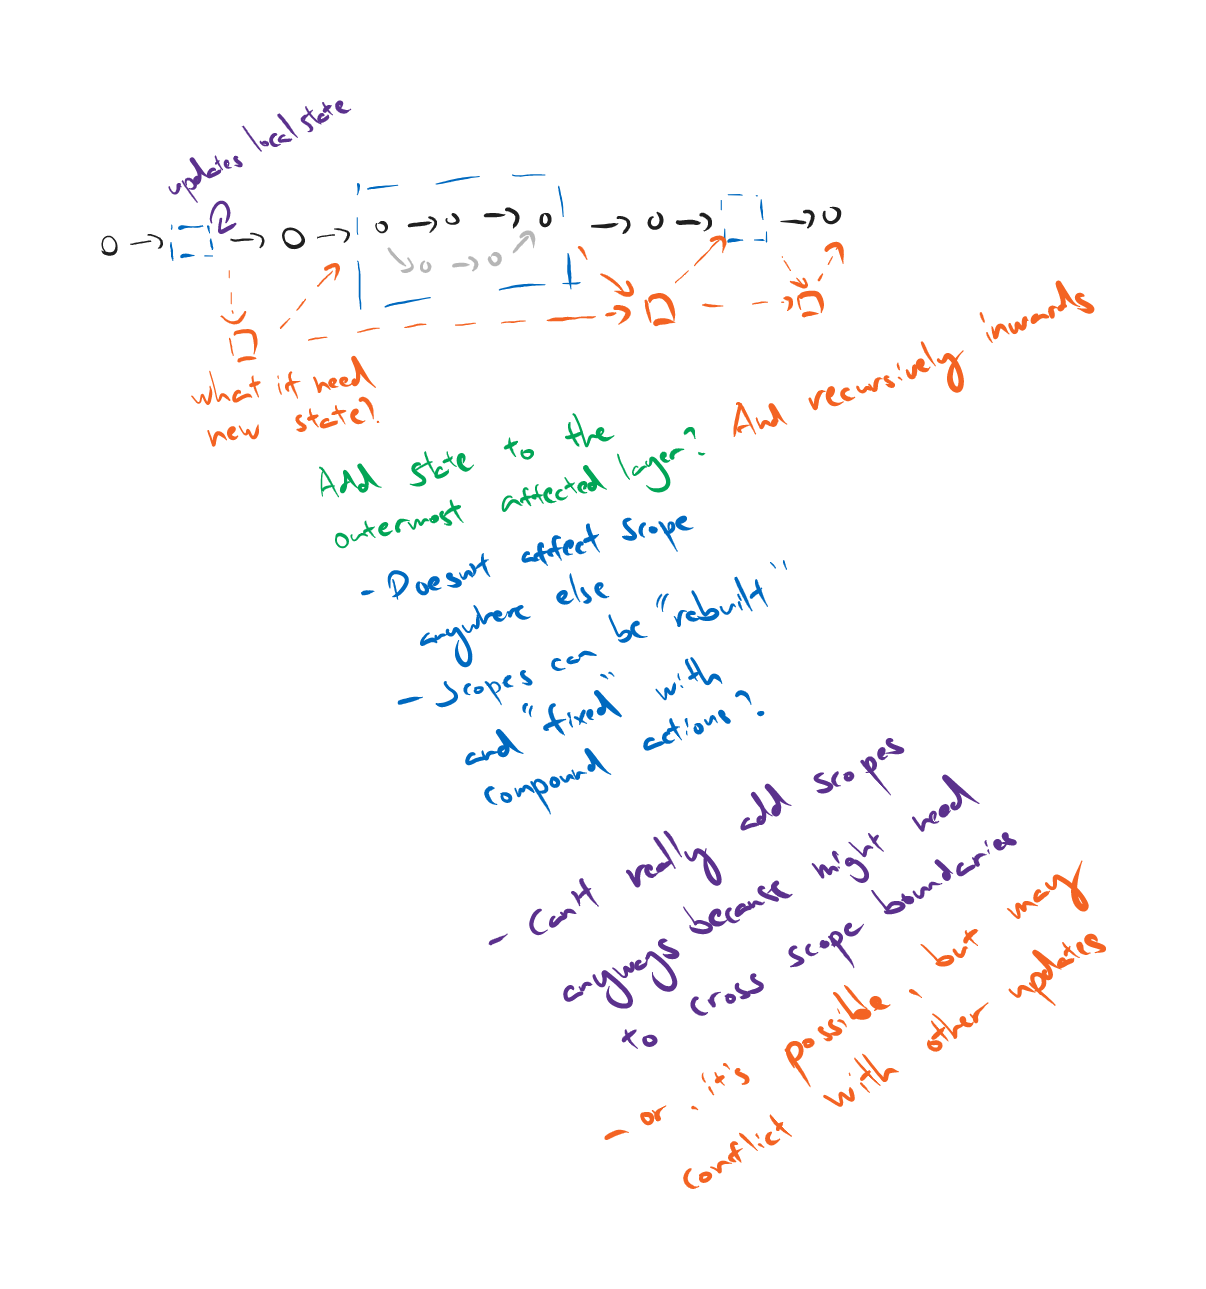 updates local state
what if need
new state?
Add state to the
outermost affected layer? And recursively inwards
- Doesn't affect scope
anywhere else
- Scopes can be "rebuilt"
and "fixed" with
compound actions?
- Can't really add scopes
anyways because might need
to cross scope boundaries
- or, it's possible, but may
conflict with other updates